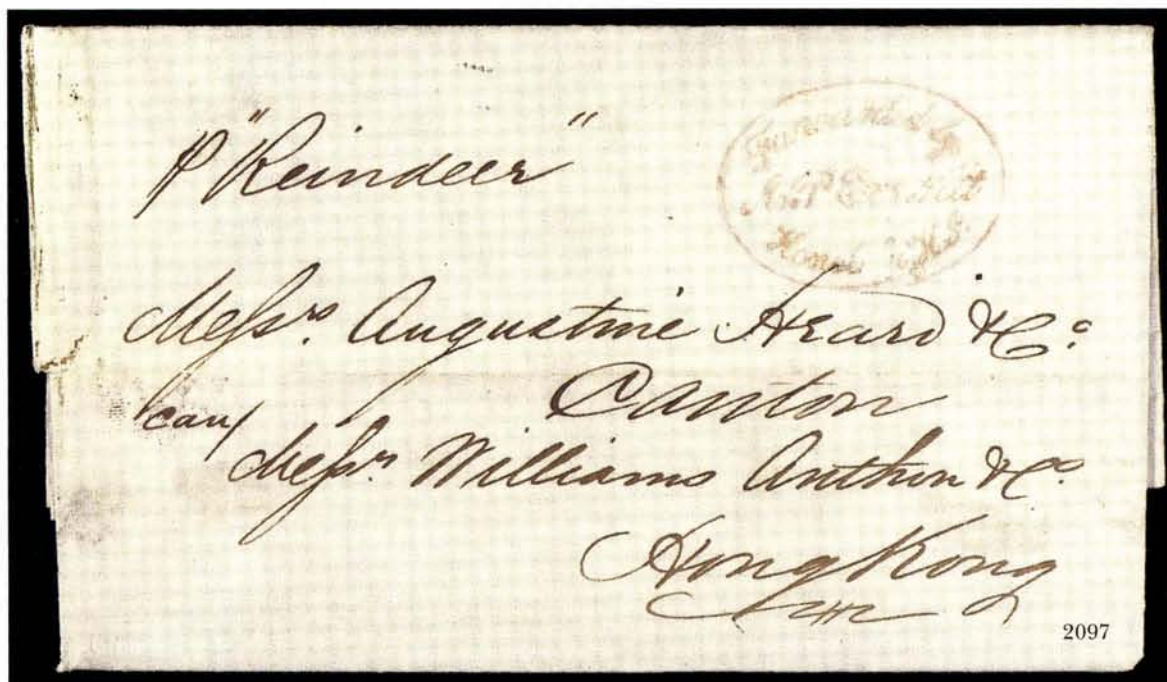 p "Reindeer"
Forwarded by
Honolulu H.I.
Messrs. Augustine Heard & Co.
Canton
care/
Messrs Williams Anthon & Co.
Hong Kong
2097